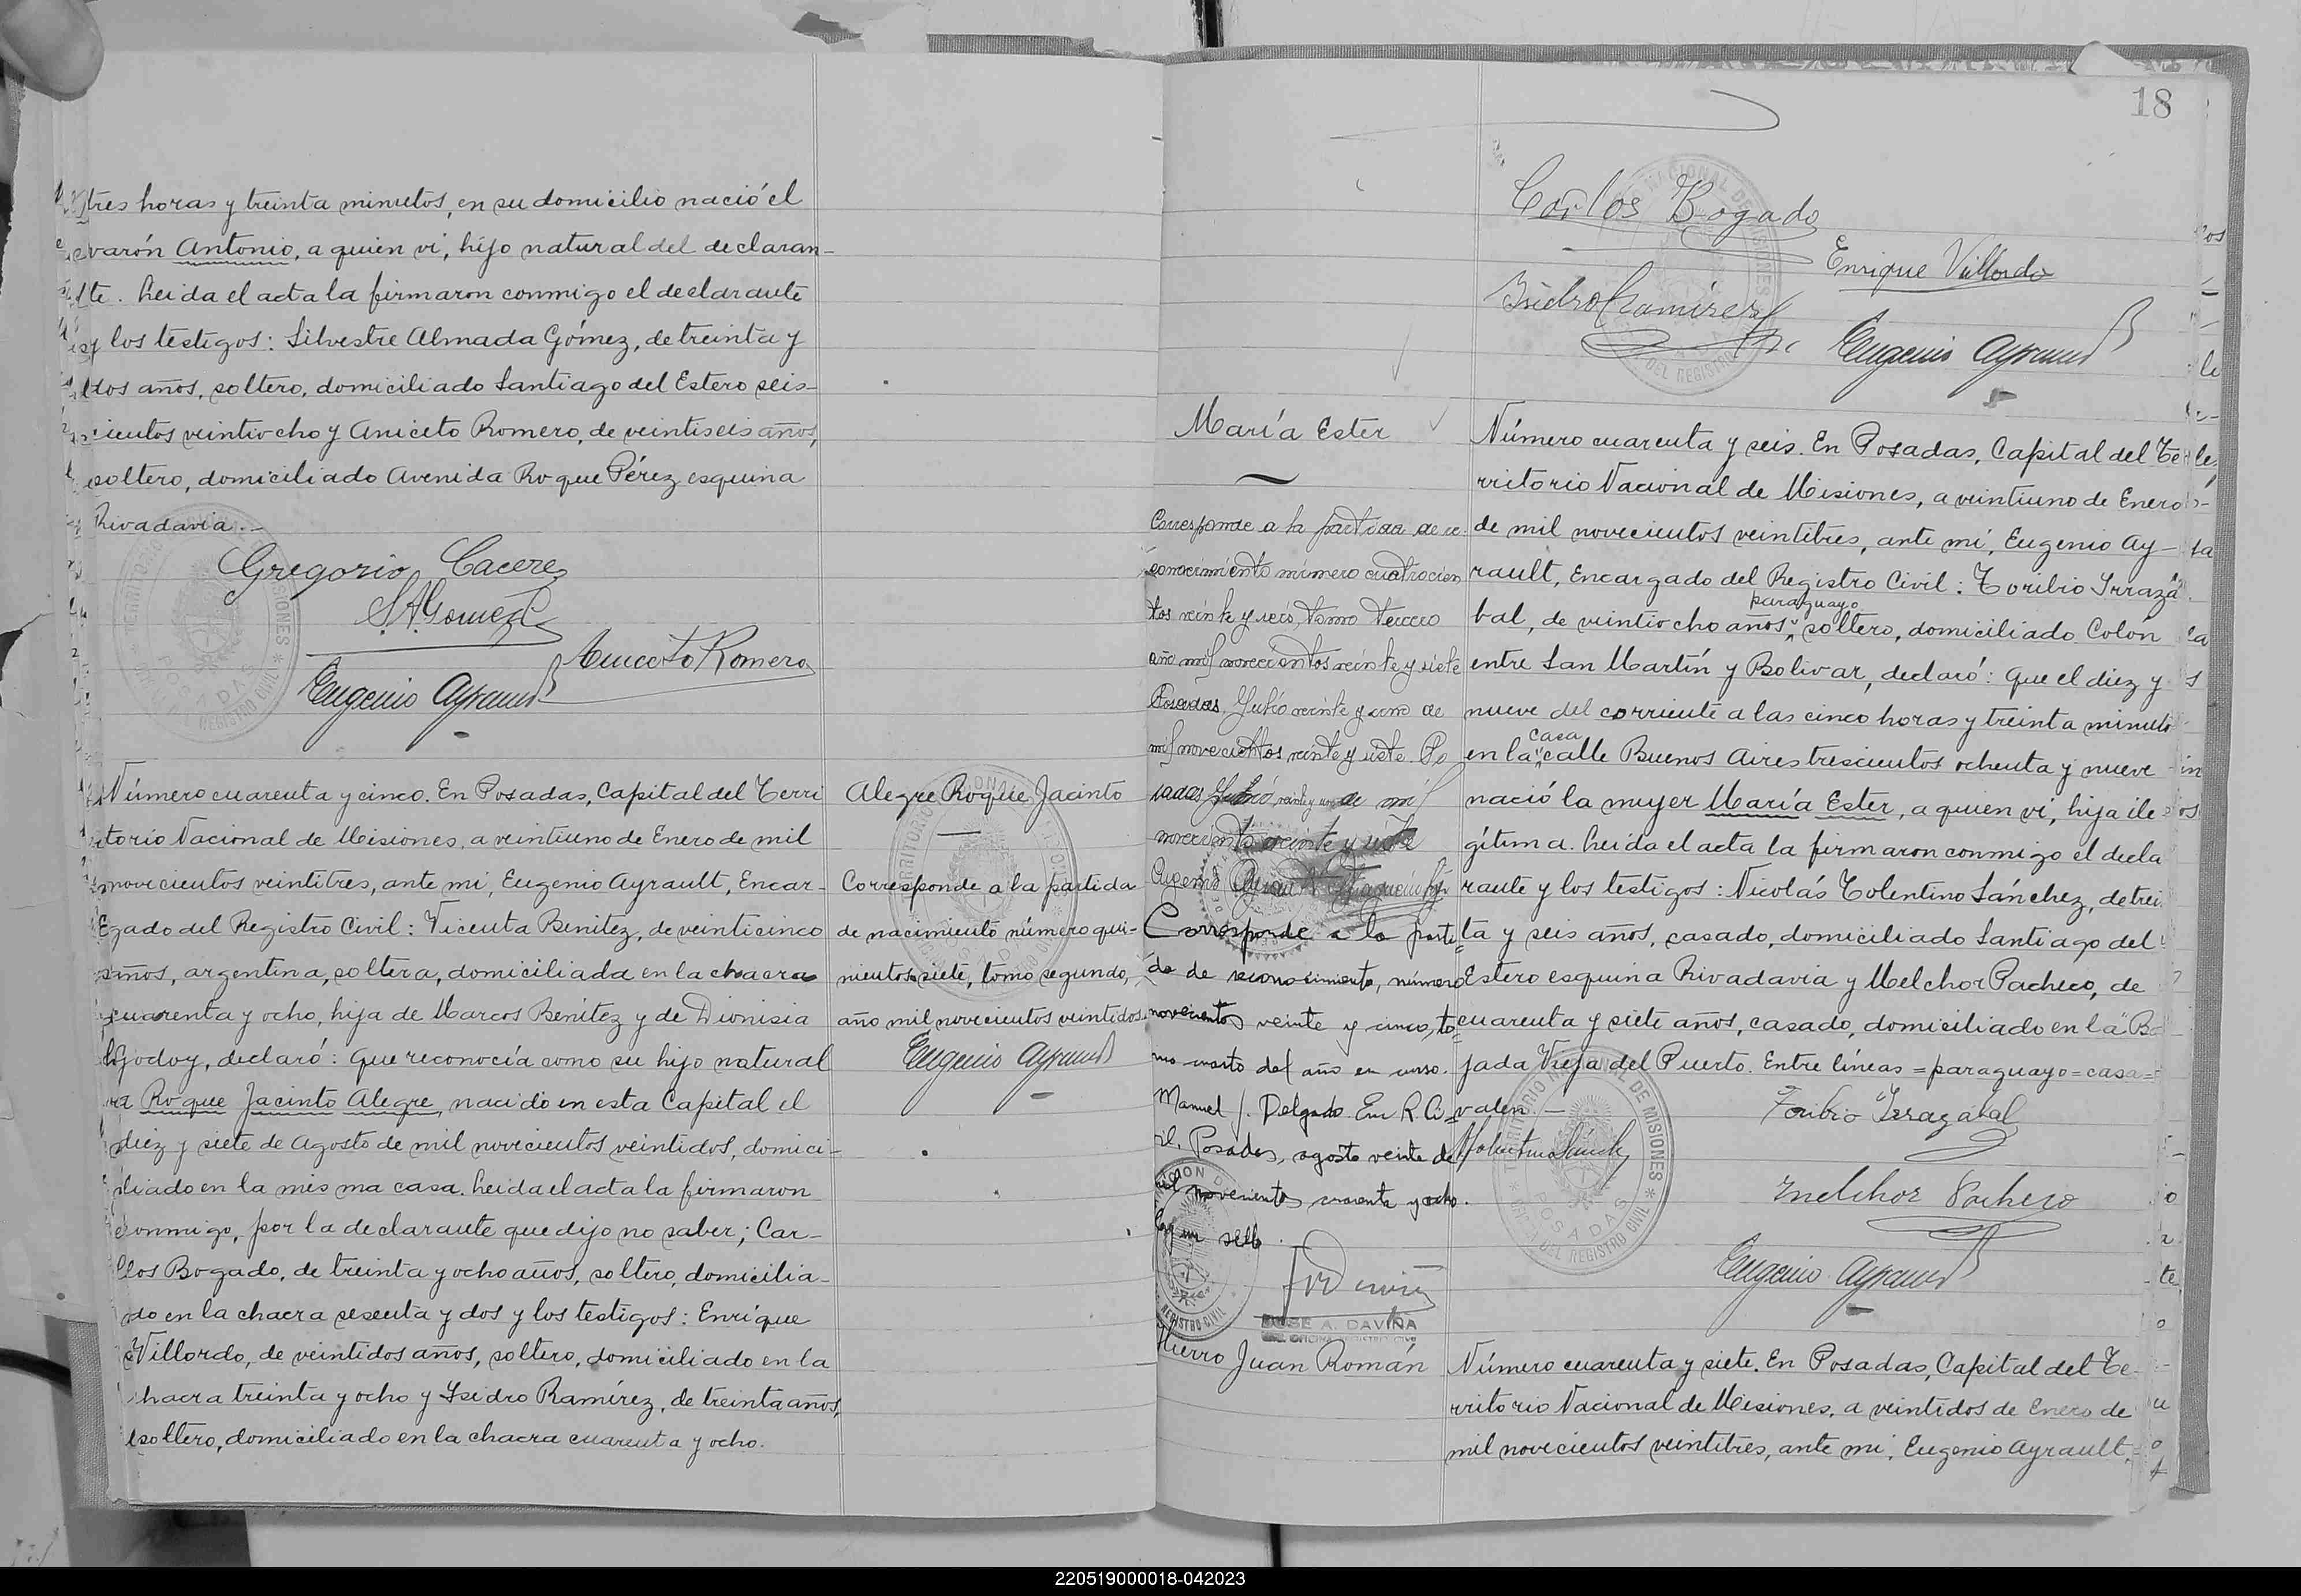 tres horas y treinta minutos, en su domicilio nació el
varón Antonio, a quien vi, hijo natural del declaran-
te. Leida el acta la firmaron conmigo el declarante
y los testigos: Silvestre Almada Gómez, de treinta y
dos años, soltero, domiciliado Santiago del Estero seis-
cientos veintiocho y Aniceto Romero, de veintiseis años,
soltero, domiciliado Avenida Roque Pérez esquina
Rivadavia.-
Gregorio Caceres
S. A. Gomez
Aniceto Romero
Eugenio Ayrault
Número cuarenta y cinco. En Posadas, Capital del Terri
torio Nacional de Misiones, a veintiuno de Enero de mil
novecientos veintitres, ante mi, Eugenio Ayrault, Encar-
gado del Registro Civil: Vicenta Benitez, de veinticinco
años, argentina, soltera, domiciliada en la chacra
cuarenta y ocho, hija de Marcos Benítez y de Dionisia
Godoy, declaró: que reconocía como su hijo natural
a Roque Jacinto Alegre, nacido en esta Capital el
diez y siete de Agosto de mil novecientos veintidos, domici-
liado en la misma casa. Leida el acta la firmaron
conmigo, por la declarante que dijo no saber; Car-
los Bogado, de treinta y ocho años, soltero, domicilia-
do en la chacra sesenta y dos y los testigos: Enrique
Villordo, de veintidos años, soltero, domiciliado en la
chacra treinta y ocho y Isidro Ramírez, de treinta años,
soltero, domiciliado en la chacra cuarenta y ocho.
Alegre Roque Jacinto
Corresponde a la partida
de nacimiento número qui-
nientos siete, tomo segundo,
año mil novecientos veintidos.
Eugenio Ayrault
18
Carlos Bogado
Enrique Villordo
Isidro Ramirez
Eugenio Ayrault
María Ester
Corresponde a la partida de re-
conocimiento número cuatrocien
tos veinte y seis, tomo tercero
año mil novecientos veinte y siete
Posadas, Julio veinte y uno de
mil novecientos veinte y siete. Po
sadas Julio veinte y uno de mil
novecientos veinte y siete
Eugenio
Corresponde a la parti-
da de reconocimiento, número
novecientos veinte y cinco, to-
mo cuarto del año en curso.
Manuel J. Delgado Enc R. Ci-
vil. Posadas, agosto veinte de
mil novecientos cuarenta y ocho.
Hay un sello.
JOSE A. DAVIÑA
Número cuarenta y seis. En Posadas, Capital del Te-
rritorio Nacional de Misiones, a veintiuno de Enero
de mil novecientos veintitres, ante mi, Eugenio Ay-
rault, Encargado del Registro Civil: Toribio Irrazá-
paraguayo
bal, de veintiocho años, soltero, domiciliado Colón
entre San Martín y Bolivar, declaró: que el diez y
nueve del corriente a las cinco horas y treinta minutos
casa
en la calle Buenos Aires trescientos ochenta y nueve
nació la mujer María Ester, a quien vi, hija ile-
gítima. Leida el acta la firmaron conmigo el decla
rante y los testigos: Nicolás Tolentino Sánchez, de trein
ta y seis años, casado, domiciliado Santiago del
Estero esquina Rivadavia y Melchor Pacheco, de
cuarenta y siete años, casado, domiciliado en la "Ba
jada Vieja del Puerto. Entre líneas =paraguayo=casa=
valen.-
Toribio Irrazabal
N Tolentino Sánchez
Melchor Pacheco
Eugenio Ayrault
Hierro Juan Román
Número cuarenta y siete. En Posadas, Capital del Te-
rritorio Nacional de Misiones, a veintidos de Enero de
mil novecientos veintitres, ante mi, Eugenio Ayrault,
220519000018-042023